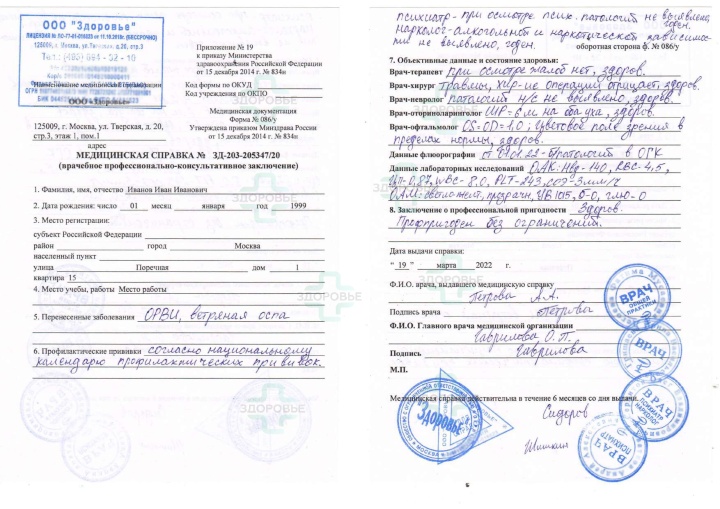 ООО "Здоровье"
125009, г. Москва, ул. Тверская, д. 20, стр.3
Тел.: (495) 694 - 52 - 10
Наименование медицинской организации
ООО «Здоровье»
125009, г. Москва, ул. Тверская, д. 20,
стр.3, этаж 1, пом.1
адрес
Приложение № 19
к приказу Министерства
здравоохранения Российской Федерации
от 15 декабря 2014 г. № 834н
Код формы по ОКУД
Код учреждения по ОКПО
Медицинская документация
Форма № 086/у
Утверждена приказом Минздрава России
от 15 декабря 2014 г. № 834н
МЕДИЦИНСКАЯ СПРАВКА № ЗД-203-205347/20
(врачебное профессионально-консультативное заключение)
1. Фамилия, имя, отчество Иванов Иван Иванович
2. Дата рождения: число 01 месяц января год 1999
3. Место регистрации:
субъект Российской Федерации
район город Москва
населенный пункт
улица Поречная дом 1
квартира 15
4. Место учебы, работы Место работы
5. Перенесенные заболевания ОРВИ, ветряная оспа
6. Профилактические прививки согласно национальному
календарю профилактических прививок.
ЗДОРОВЬЕ
ЗДОРОВЬЕ
ЗДОРОВЬЕ
ЗДОРОВЬЕ
психиатр - при осмотре псих. патологий не выявлено,
годен.
нарколог - алкогольной и наркотической зависимос-
ти не выявлено, годен.
оборотная сторона ф. № 086/у
7. Объективные данные и состояние здоровья:
Врач-терапевт при осмотре жалоб нет, здоров.
Врач-хирург травмы, хир-ие операции отрицает, здоров.
Врач-невролог патологий н/с не выявлено, здоров.
Врач-оториноларинголог на оба уха, здоров.
Врач-офтальмолог OS=OD=1,0; цветовое поле зрения в
пределах нормы, здоров.
Данные флюорографии от 01.01.22 - патологий в ОГК
Данные лабораторных исследований ОАК: Hb - 140, RBC - 4,5,
WBC - 8.0, PLT - 243, СОЭ - 3мм/ч
О.А.М: прозрачн,
8. Заключение о профессиональной пригодности Здоров.
Профпригоден без ограничений.
Дата выдачи справки:
" 19 " марта 2022 г.
Ф.И.О. врача, выдавшего медицинскую справку
Петрова А.А.
Подпись врача Петрова
Ф.И.О. Главного врача медицинской организации
Гаврилова О.П.
Подпись Гаврилова
М.П.
Медицинская справка действительна в течение 6 месяцев со дня выдачи.
Сидоров
Здоровье
ВРАЧ
ОБЩЕЙ
ПРАКТИКИ
ВРАЧ
ВРАЧ
ПСИХИАТР
НАРКОЛОГ
ВРАЧ
ПСИХИАТР